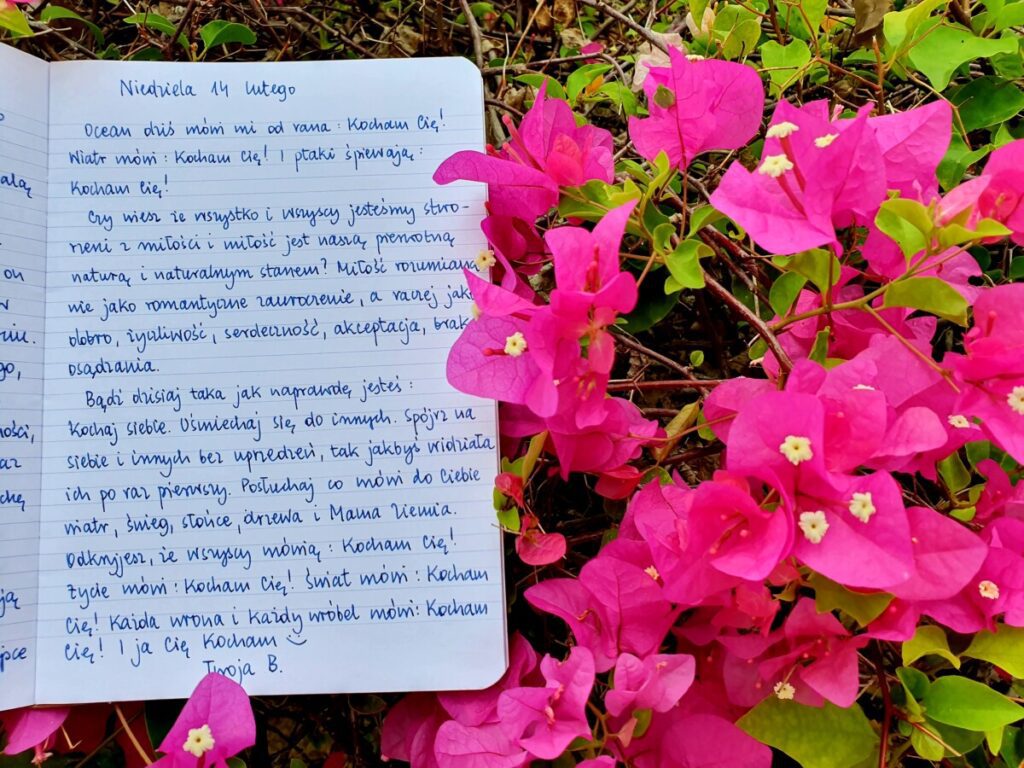 Niedziela 14 lutego
Ocean dziś mówi mi od rana : Kocham Cię!
Wiatr mówi : Kocham Cię! I ptaki śpiewają :
Kocham Cię!
Czy wiesz że wszystko i wszyscy jesteśmy stwo-
rzeni z miłości i miłość jest naszą pierwotną
naturą i naturalnym stanem? Miłość rozumiana
nie jako romantyczne zauroczenie, a raczej jako
dobro, życzliwość, serdeczność, akceptacja, brak
osądzania.
Bądź dzisiaj taka jak naprawdę jesteś :
Kochaj siebie. Uśmiechaj się do innych. Spójrz na
siebie i innych bez uprzedzeń, tak jakbyś widziała
ich po raz pierwszy. Posłuchaj co mówi do Ciebie
wiatr, śnieg, słońce, drzewa i Mama Ziemia.
Odkryjesz, że wszyscy mówią : Kocham Cię!
Życie mówi : Kocham Cię! Świat mówi : Kocham
Cię! Każda wrona i każdy wróbel mówi: Kocham
Cię! I ja Cię Kocham
Twoja B.